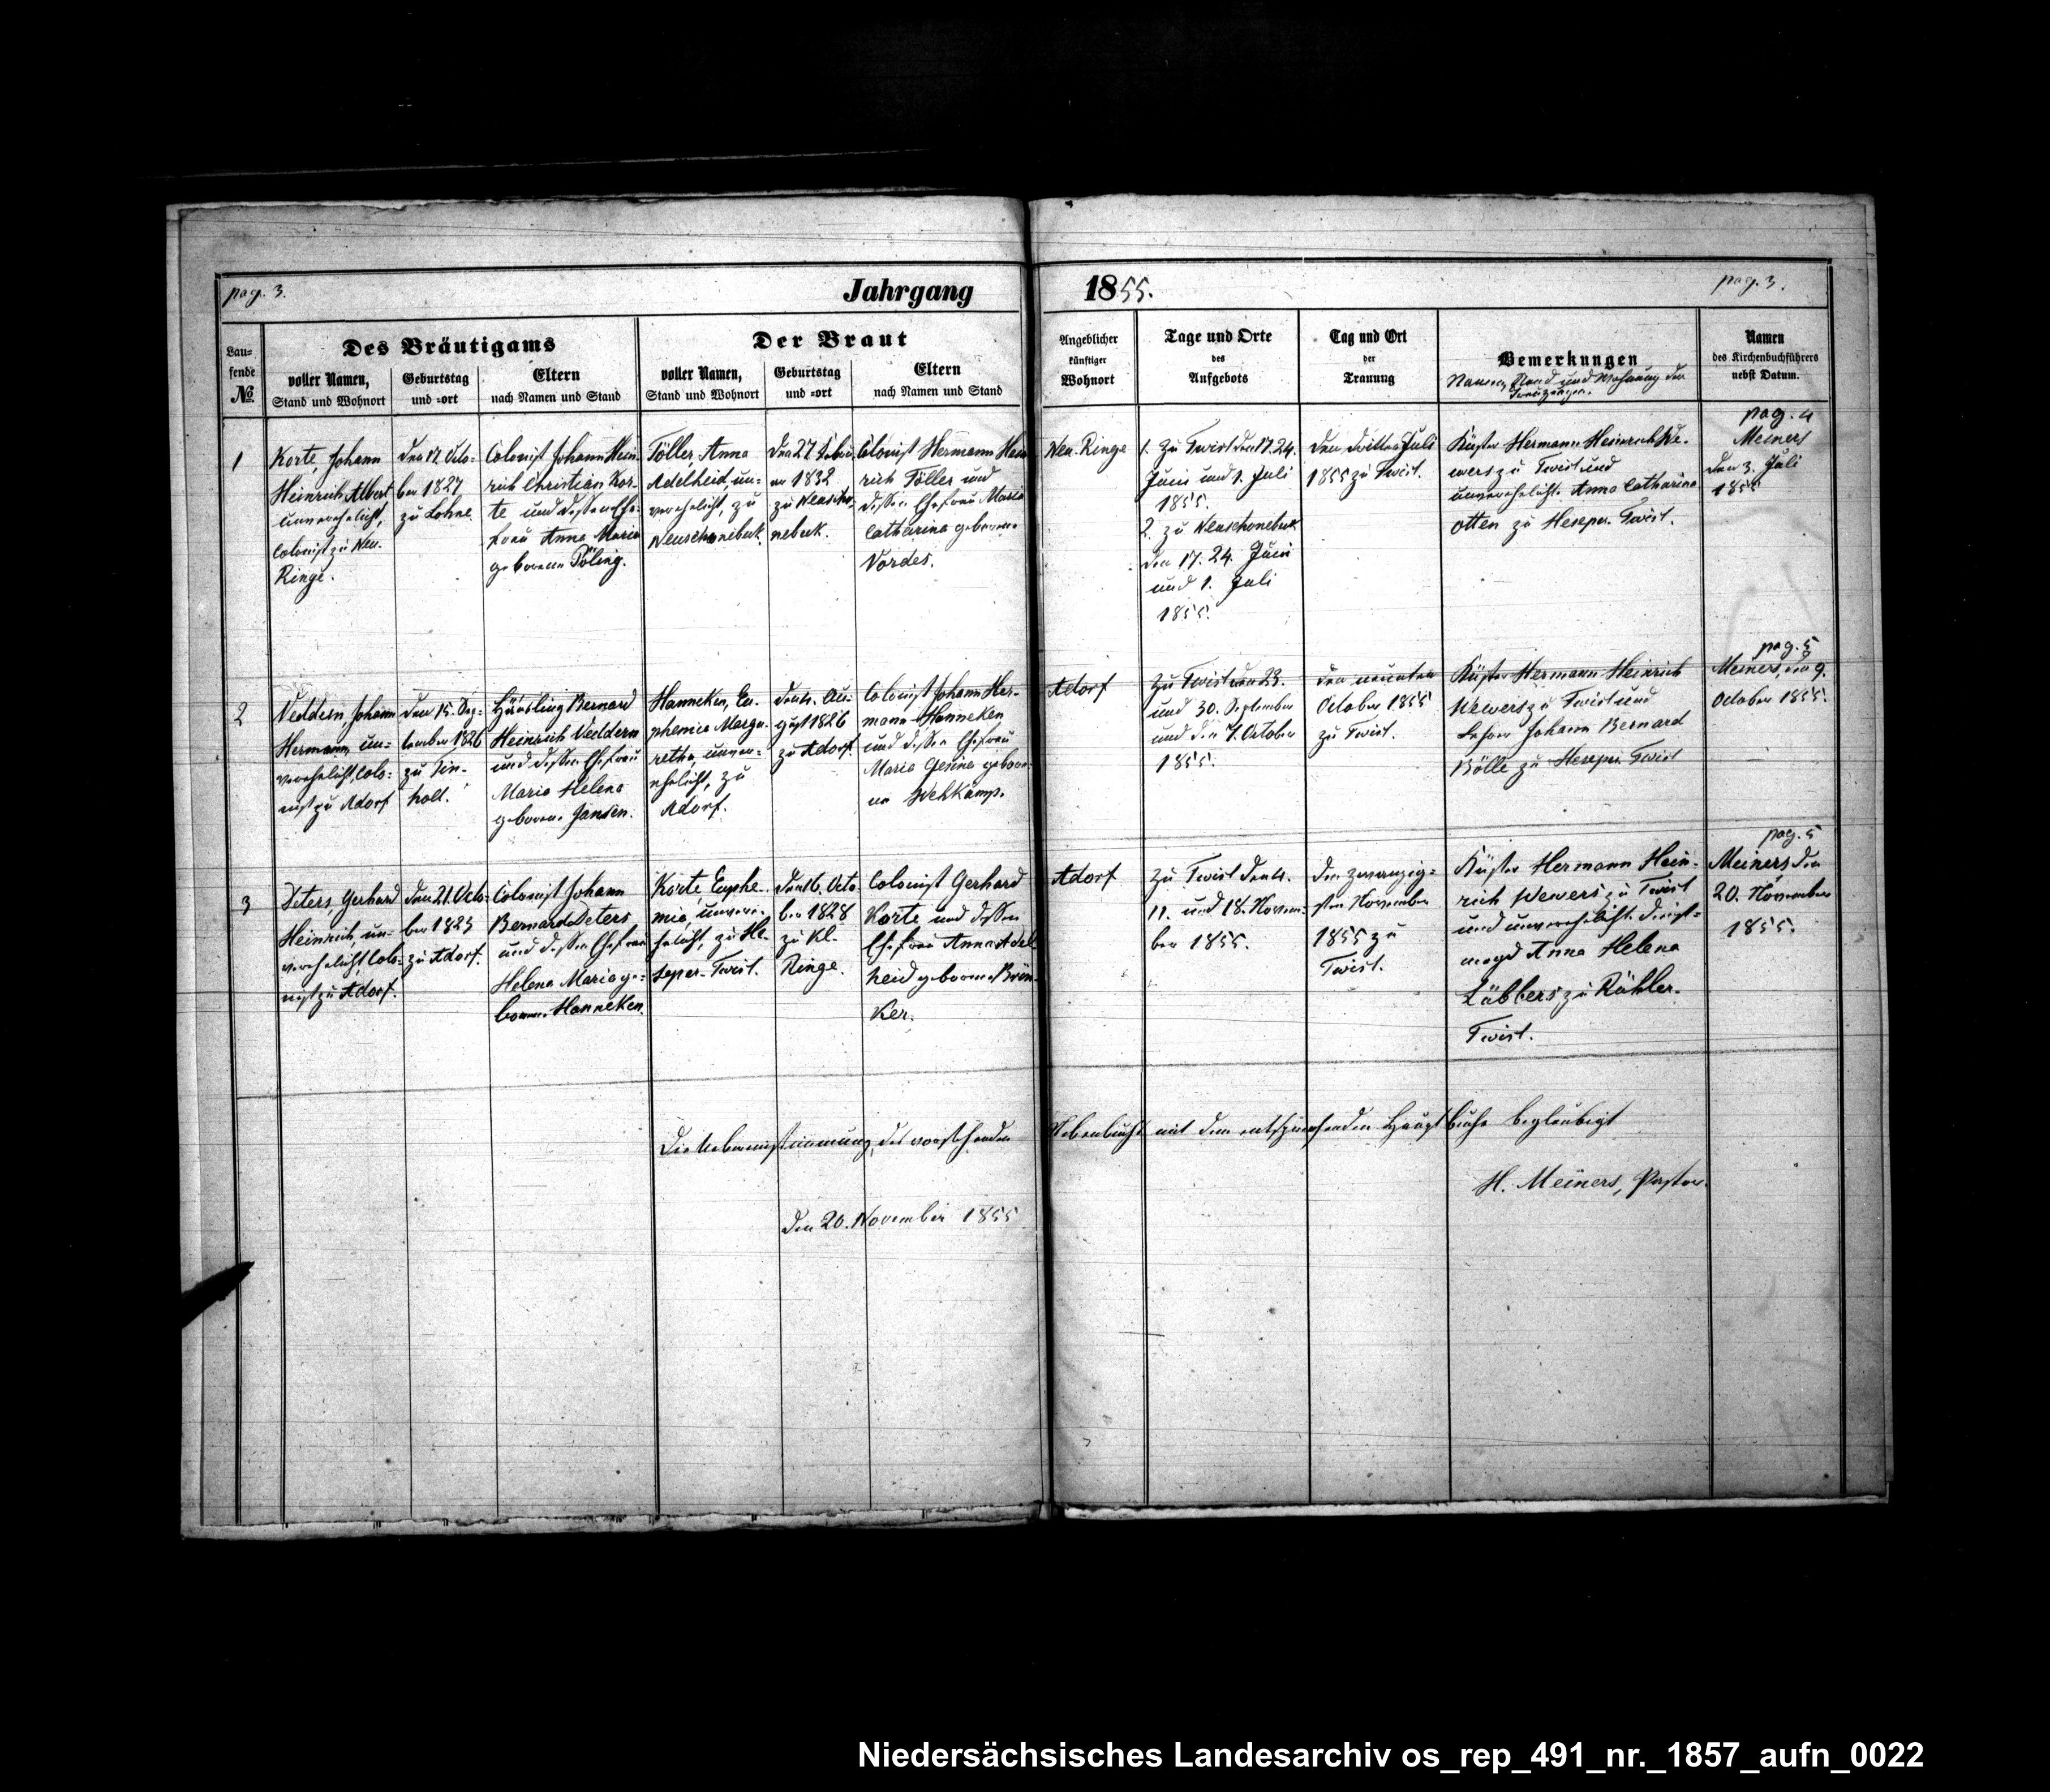 pag. 3.
Jahrgang 1855.
pag. 3.
Lau=
fende
№
Des Bräutigams
voller Namen,
Stand und Wohnort
Geburtstag
und =ort
Eltern
nach Namen und Stand
Der Braut
voller Namen,
Stand und Wohnort
Geburtstag
und =ort
Eltern
nach Namen und Stand
Angeblicher
künftiger
Wohnort
Tage und Orte
des
Aufgebots
Tag und Ort
der
Trauung
Bemerkungen
Namen, Stand und Wohnung der
Trauzeugen.
Namen
des Kirchenbuchführers
nebst Datum.
1
Korte, Johann
Heinrich Albert
unverehelicht,
Colonist zu Neu-
Ringe.
den 17. Octo-
ber 1827
zu Lohne.
Colonist Johann Hein-
rich Christian Kor-
te und dessen Ehe-
frau Anna Maria
geborene Pöling.
Töller, Anna
Adelheid, un-
verehelicht, zu
Neuschonebeek.
den 27. Febru-
ar 1832
zu Neuscho-
nebeek.
Colonist Hermann Hein-
rich Töller und
dessen Ehefrau Maria
Catharina geborene
Vordes.
Neu-Ringe
1. Zu Twist den 17. 24.
Juni und 1. Juli
1855.
2. zu Neuschonebeek
den 17. 24. Juni
und 1. Juli
1855.
den dritten Juli
1855 zu Twist.
Küster Hermann Heinrich We-
wers zu Twist und
unverehelicht. Anna Catharina
Otten zu Heseper-Twist.
pag. 4
Meiners
den 3. Juli
1855
2
Veddern, Johann
Hermann, un-
verehelicht, Colo-
nist zu Adorf
den 15. Sep-
tember 1826
zu Tin-
holt.
Häusling Bernard
Heinrich Veddern
und dessen Ehefrau
Maria Helena
geborene Jansen.
Hanneken, Eu-
phemia Marga-
retha, unver-
ehelicht, zu
Adorf.
den 4. Au-
gust 1826
zu Adorf.
Colonist Johann Her-
mann Hanneken
und dessen Ehefrau
Maria Gesina gebore-
ne Wehkamp.
Adorf
Zu Twist den 23.
und 30. September
und den 7. October
1855.
den neunten
October 1855
zu Twist.
Küster Hermann Heinrich
Wewers zu Twist und
Lehrer Johann Bernard
Bölle zu Heseper-Twist
pag. 5
Meiners, den 9.
October 1855.
3
Deters, Gerhard
Heinrich, un-
verehelicht, Colo-
nist zu Adorf.
den 21. Octo-
ber 1823
zu Adorf.
Colonist Johann
Bernard Deters
und dessen Ehefrau
Helena Maria ge-
borene Hanneken.
Korte, Euphe-
mia, unver-
ehelicht, zu He-
seper-Twist.
den 16. Octo-
ber 1828
zu Kl.
Ringe.
Colonist Gerhard
Korte und dessen
Ehefrau Anna Adel-
heid geborene Brün-
ker.
Adorf
Zu Twist den 4.
11. und 18. Novem-
ber 1855.
den zwanzig-
sten November
1855 zu
Twist.
Küster Hermann Hein-
rich Wewers zu Twist
und unverehelicht. Dienst-
magd Anna Helena
Lübbers zu Rühler-
Twist.
pag. 5
Meiners, den
20. November
1855.
Die Uebereinstimmung des vorstehenden Nebenbuchs mit dem entsprechenden Hauptbuche beglaubigt
H. Meiners, Pastor.
den 20. November 1855
Niedersächsisches Landesarchiv os_rep_491_nr._1857_aufn_0022